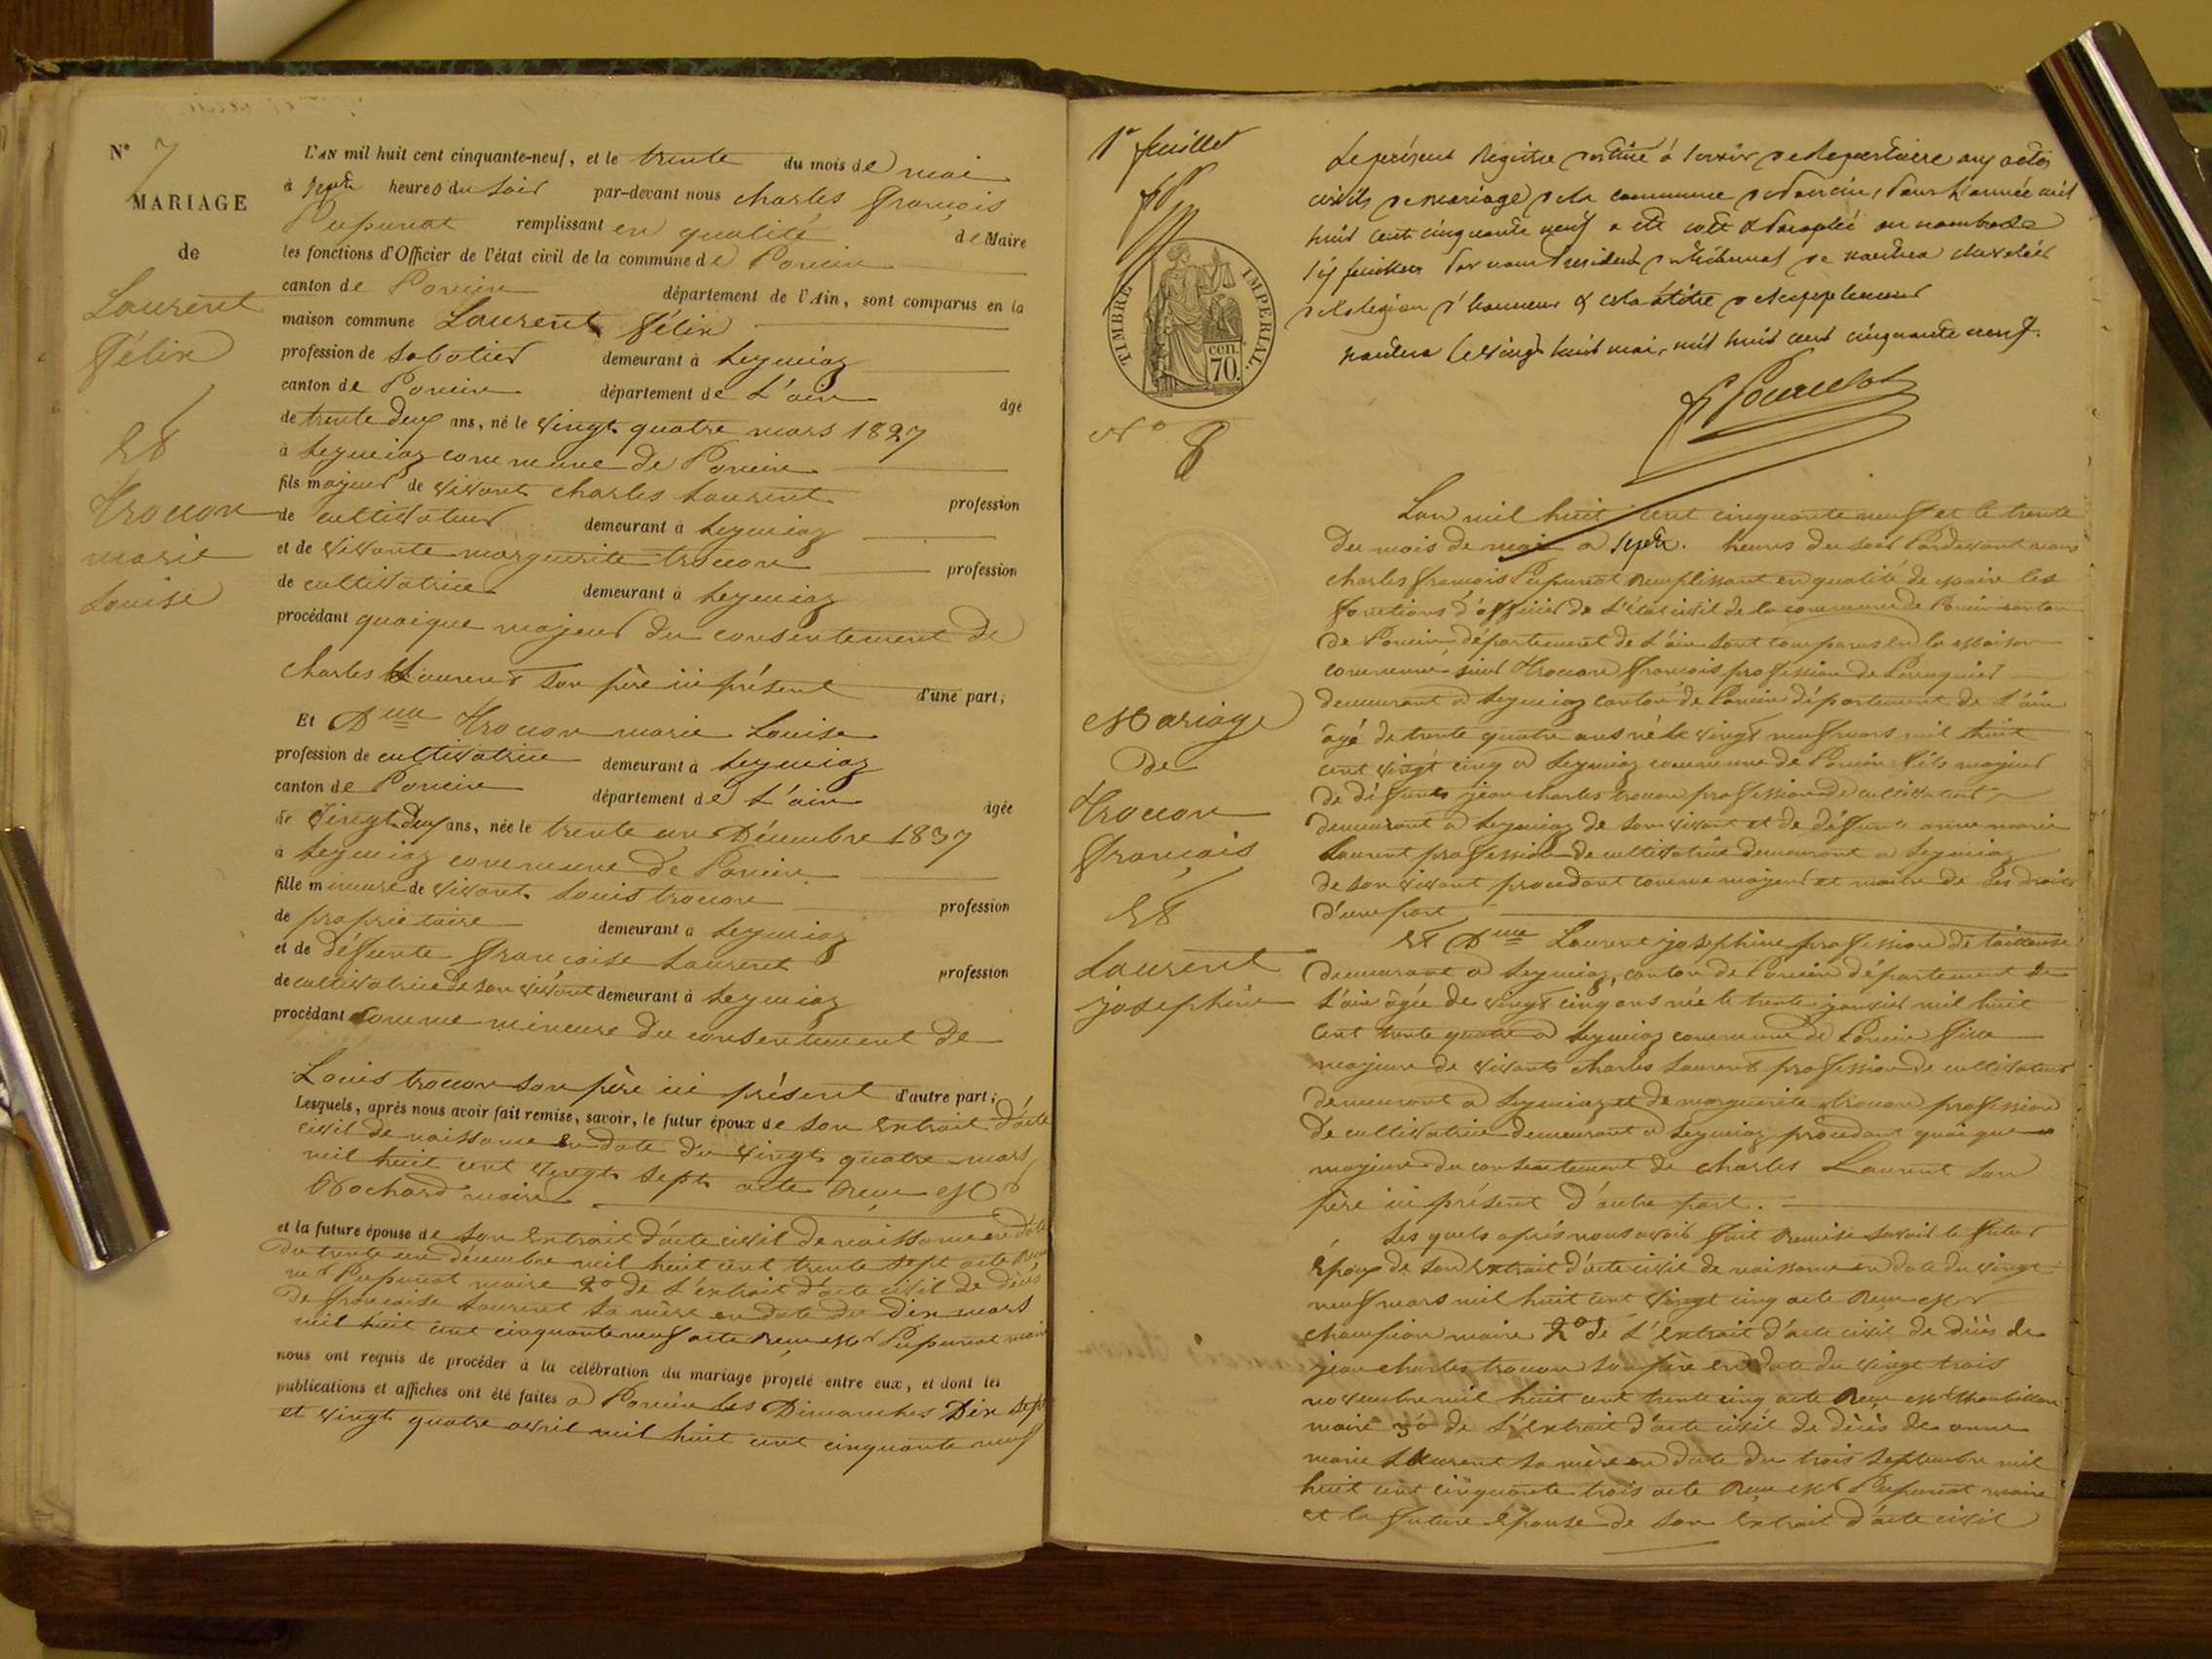 N° 7
MARIAGE
de
Laurent
Félix
et
Trocon
marie
Louise
L'AN mil huit cent cinquante-neuf, et le trente du mois de mai
à sept heures du soir par-devant nous charles françois
Pupunat remplissant en qualité de Maire
les fonctions d'Officier de l'état civil de la commune de Poncin
canton de Poncin département de l'Ain, sont comparus en la
maison commune Laurent félix
profession de sabotier demeurant à Leymiaz
canton de Poncin département de L'ain âgé
de trente deux ans, né le vingt quatre mars 1827
à Leymiaz commune de Poncin
fils majeur de vivant charles Laurent profession
de cultivateur demeurant à Leymiaz
et de vivante marguerite trocon profession
de cultivatrice demeurant à Leymiaz
procédant quoique majeur du consentement de
Charles Laurent son père ici présent d'une part;
Et Dlle Trocon marie Louise
profession de cultivatrice demeurant à Leymiaz
canton de Poncin département de L'ain âgée
de vingt deux ans, née le trente un Décembre 1837
à Leymiaz commune de Poncin
fille mineure de vivant Louis trocon profession
de propriétaire demeurant à Leymiaz
et de défunte françoise Laurent profession
de cultivatrice de son vivant demeurant à Leymiaz
procédant comme mineure du consentement de
Louis trocon son père ici présent d'autre part;
Lesquels, après nous avoir fait remise, savoir, le futur époux de son extrait d'acte
civil de naissance en date du vingt quatre mars
mil huit cent vingt sept acte reçu Mr
Bochard maire
et la future épouse de son extrait d'acte civil de naissance en date
du trente un décembre mil huit cent trente sept acte reçu
Mr Pupunat maire 2° de L'extrait d'acte civil de décès
de françoise Laurent sa mère en date du dix mars
mil huit cent cinquante neuf acte reçu Mr Pupunat maire
nous ont requis de procéder à la célébration du mariage projeté entre eux, et dont les
publications et affiches ont été faites à Poncin les Dimanches Dix sept
et vingt quatre avril mil huit cent cinquante neuf
1er feuillet
TIMBRE IMPERIAL.
cen. 70.
Le présent Registre destiné à servir de Repertoire aux actes
civils de mariage de la commune de Poncin, pour L'année mil
huit cent cinquante neuf a été coté & paraphé au nombre de
six feuillets par nous President du tribunal de nantua chevalier
de la légion d'honneur & cela à titre de supplement
nantua le vingt huit mai, mil huit cent cinquante neuf.
N° 8
Mariage
de
Trocon
François
et
Laurent
josephine
Lan mil huit cent cinquante neuf et le trente
du mois de mai a sept heures du soir Pardevant nous
charles françois Pupunat remplissant en qualité de maire les
fonctions d'officier de L'état civil de la commune de Poncin canton
de Poncin, département de L'ain sont comparus en la maison
commune sieur Trocon françois profession de
demeurant a Leymiaz canton de Poncin département de L'ain
âgé de trente quatre ans né le vingt neuf mars mil huit
cent vingt cinq a Leymiaz commune de Poncin fils majeur
de défunt jean charles trocon profession de cultivateur
demeurant a Leymiaz de son vivant et de défunte anne marie
Laurent profession de cultivatrice demeurant a Leymiaz
de son vivant procedant comme majeur et maître de ses droits
d'une part
Et Dlle Laurent josephine profession de tailleuse
demeurant a Leymiaz, canton de Poncin département de
L'ain âgée de vingt cinq ans née le trente janvier mil huit
cent trente quatre a Leymiaz commune de Poncin fille
majeure de vivants charles Laurent profession de cultivateur
demeurant a Leymiaz et de marguerite trocon profession
de cultivatrice demeurant a Leymiaz procedant quoique
majeure du consentement de charles Laurent son
père ici présent d'autre part.
Les quels après nous avoir fait remise savoir le futur
Époux de son extrait d'acte civil de naissance en date du vingt
neuf mars mil huit cent vingt cinq acte reçu Mr
champion maire 2° de L'extrait d'acte civil de décès de
jean charles trocon son père en date du vingt trois
novembre mil huit cent trente cinq acte reçu Mr
maire 3° de L'extrait d'acte civil de décès de anne
marie Laurent sa mère en date du trois septembre mil
huit cent cinquante trois acte reçu Mr Pupunat maire
et la future Épouse de son Extrait d'acte civil